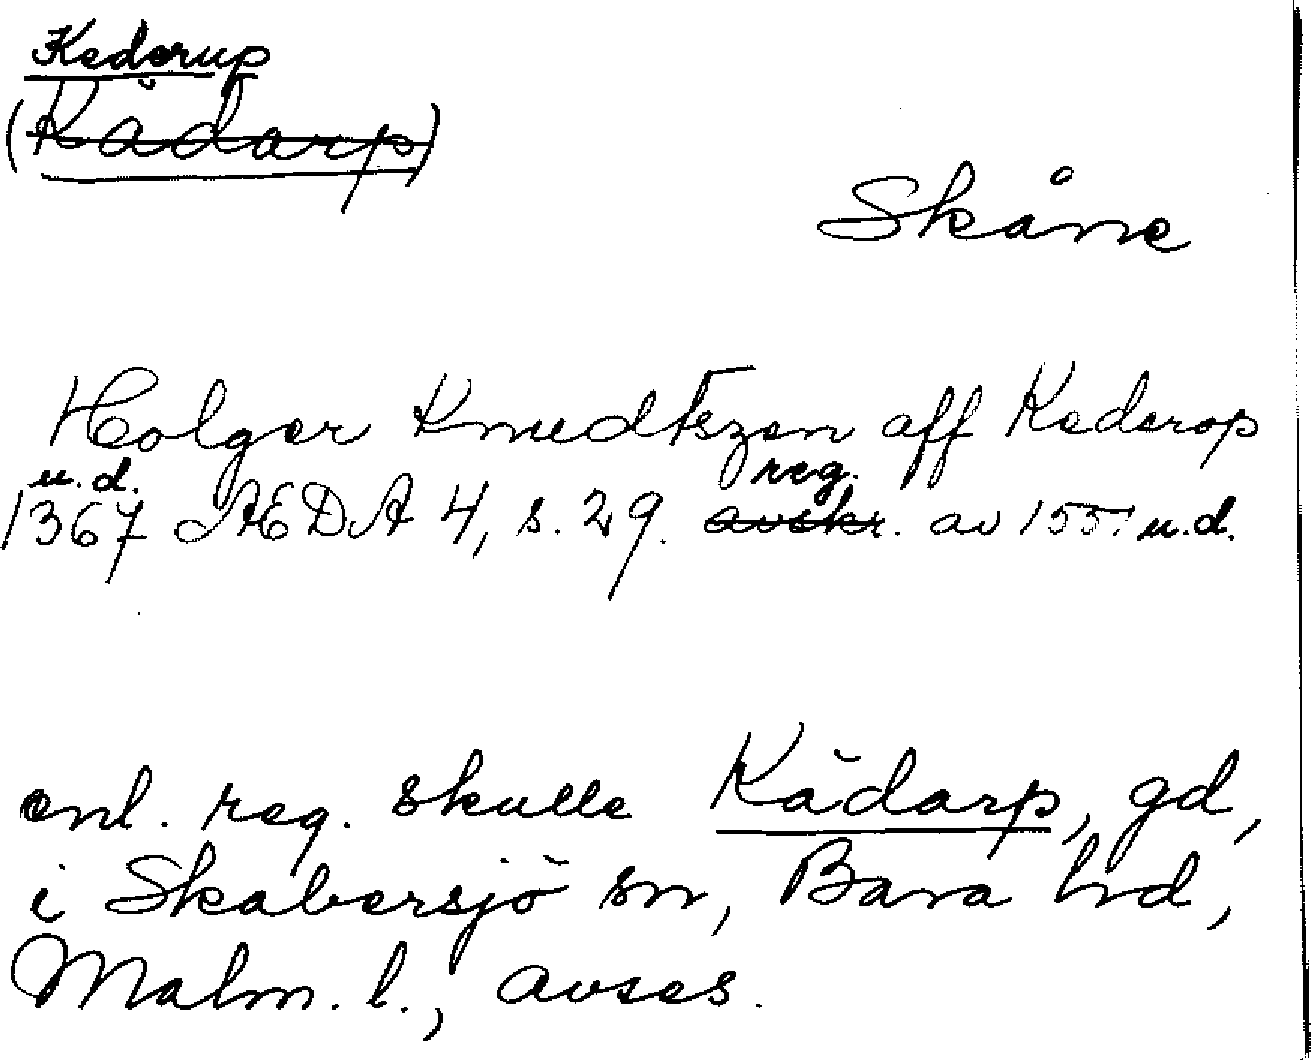 Kederup
(Kädarp)
Skåne
Holger Knudtszen aff Kederop
u.d. reg.
1367 ÆDA 4, s. 29. avskr. av 1551 u.d.
enl. reg. skulle Kädarp, gd,
i Skabersjö sn, Bara hd,
Malm. l., avses.